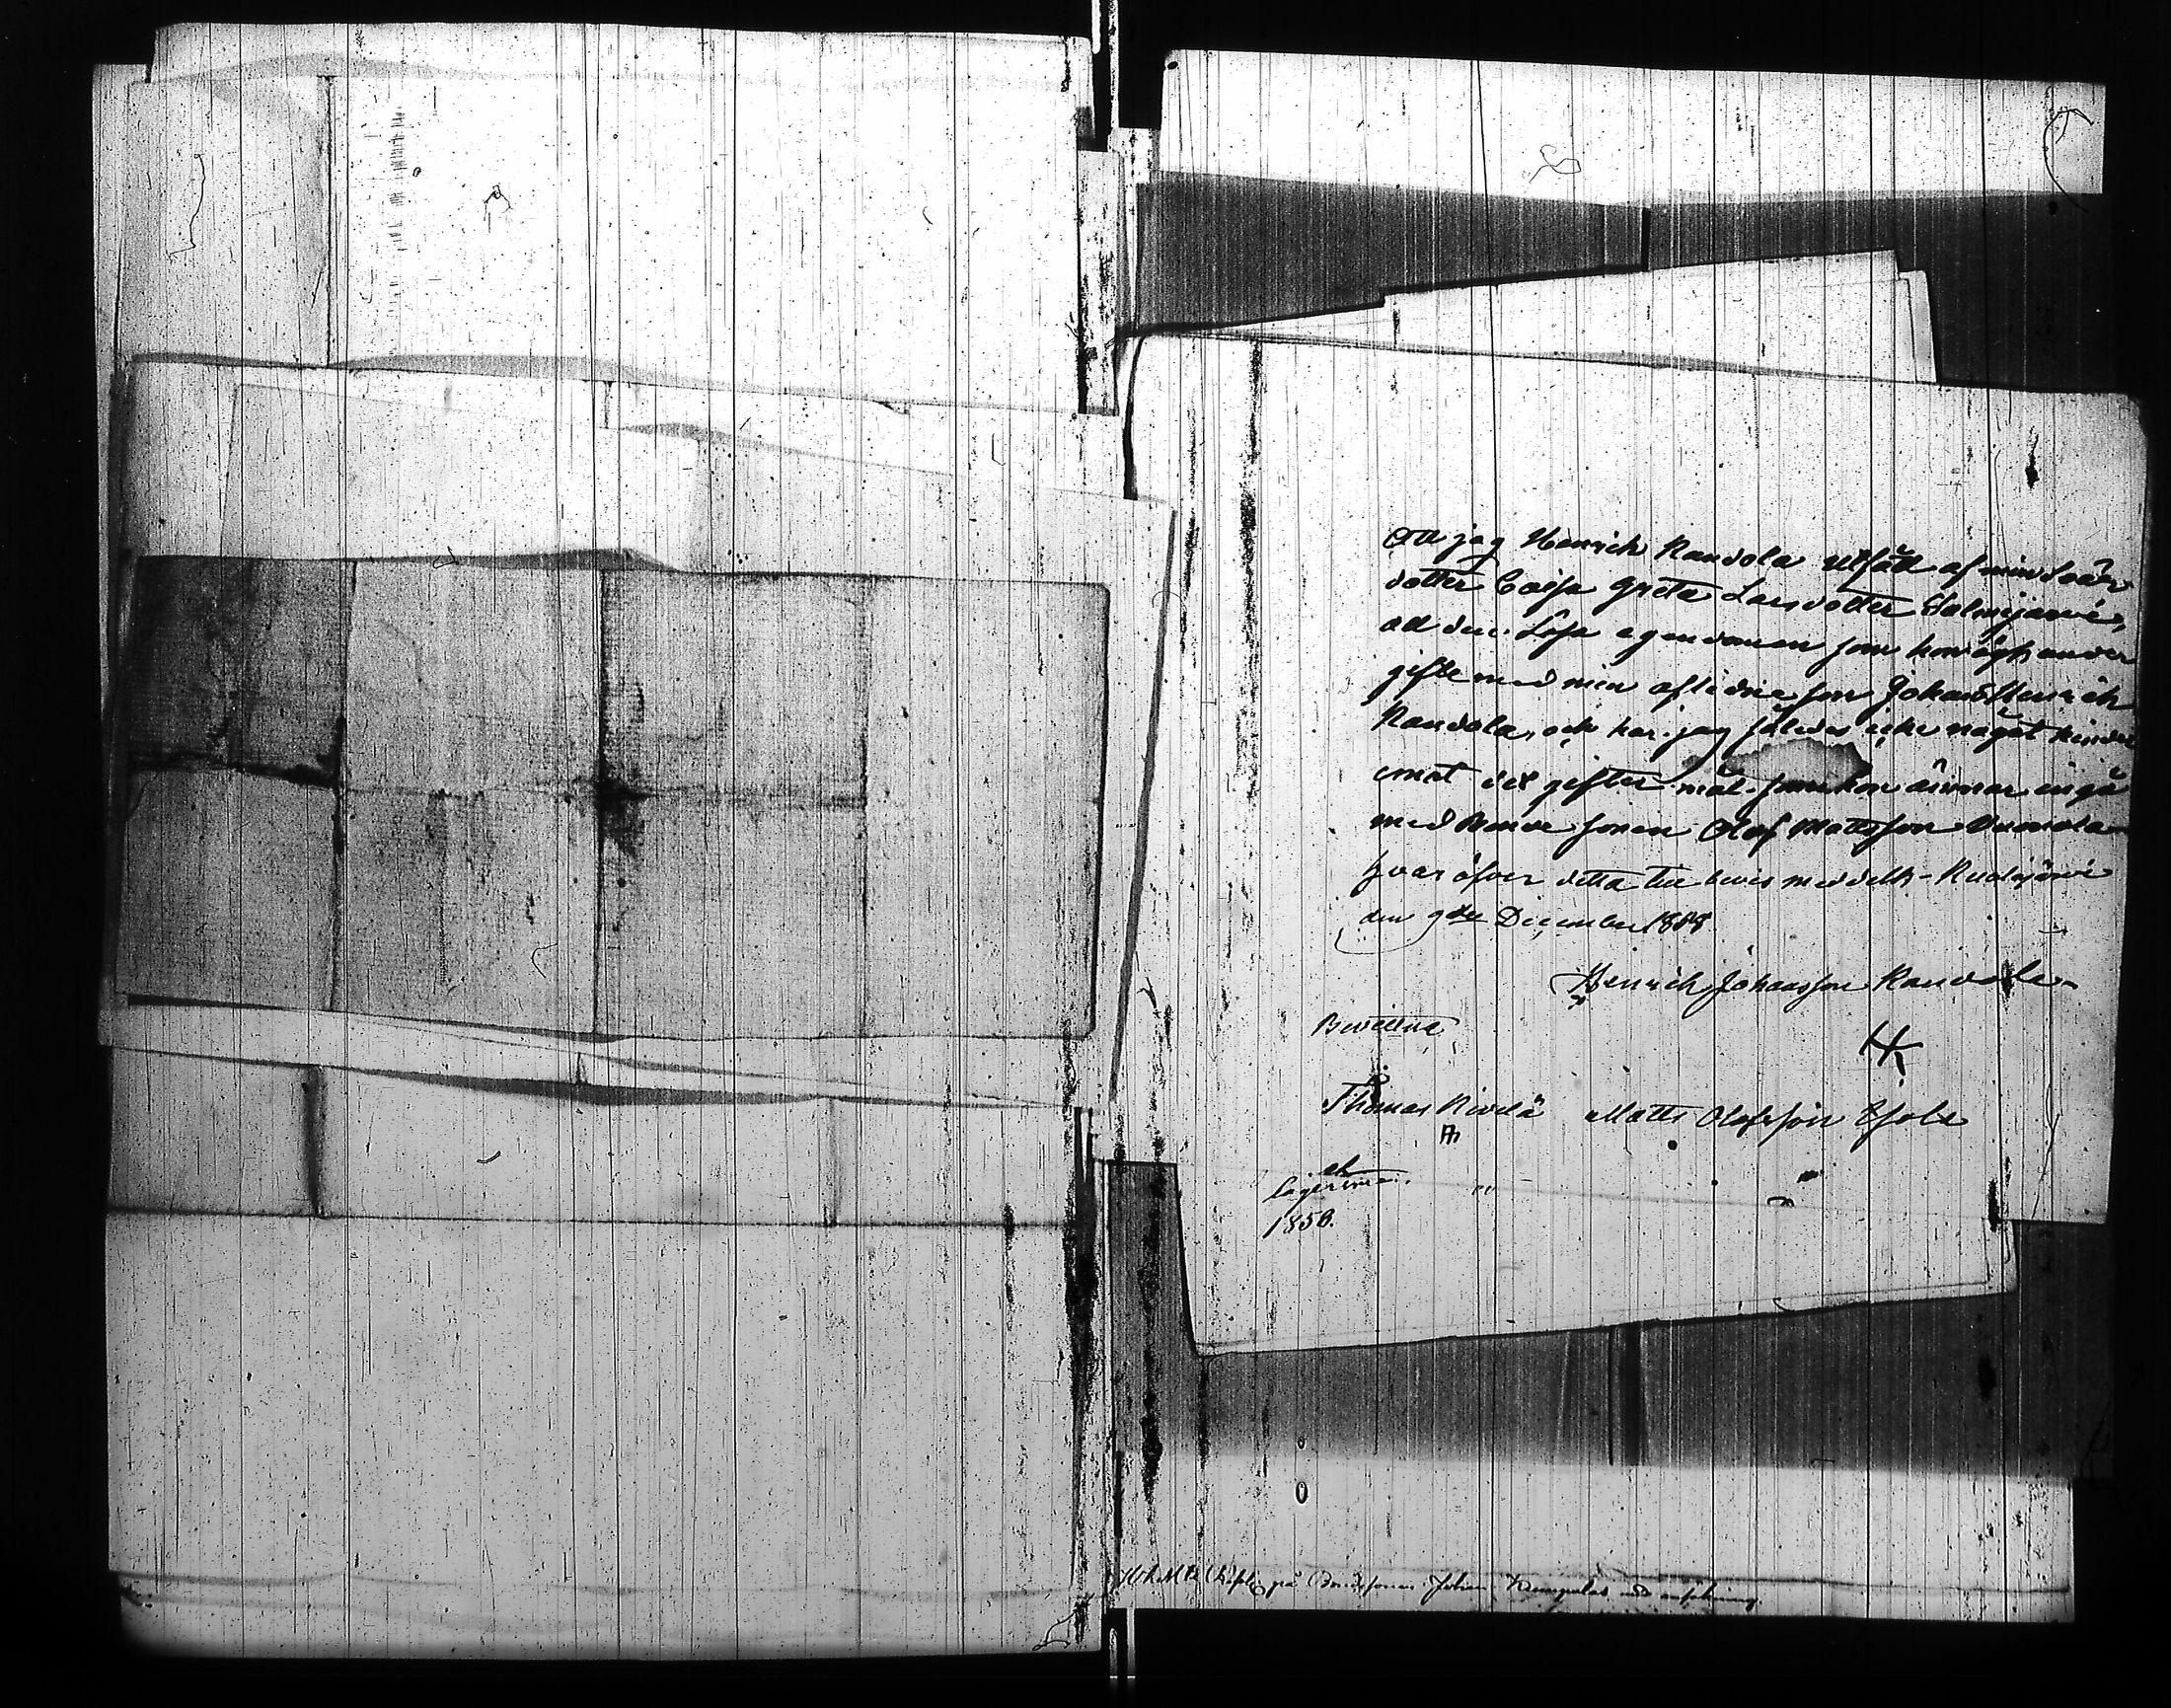 Att jag Henrich Randola utfått af min Svär
dotter Caisa Greta Larsdotter Salmijärvi,
all den lösa egendomen som hon ägt under
gifte med min aflidne son Johan Henrich
Randola, och har jag således icke något hinder
emot det giftermål som hon ämnar ingå
med Bonde sonen Olof Mattsson Vuonola
hvaröfver detta till bevis meddelts - Kuolajärvi
den 9de December 18
Henrich Johansson Randola
Bevittna
Thomas Kivelä Matts Olofsson
1858.
på Bondesonen Johan ansökning.